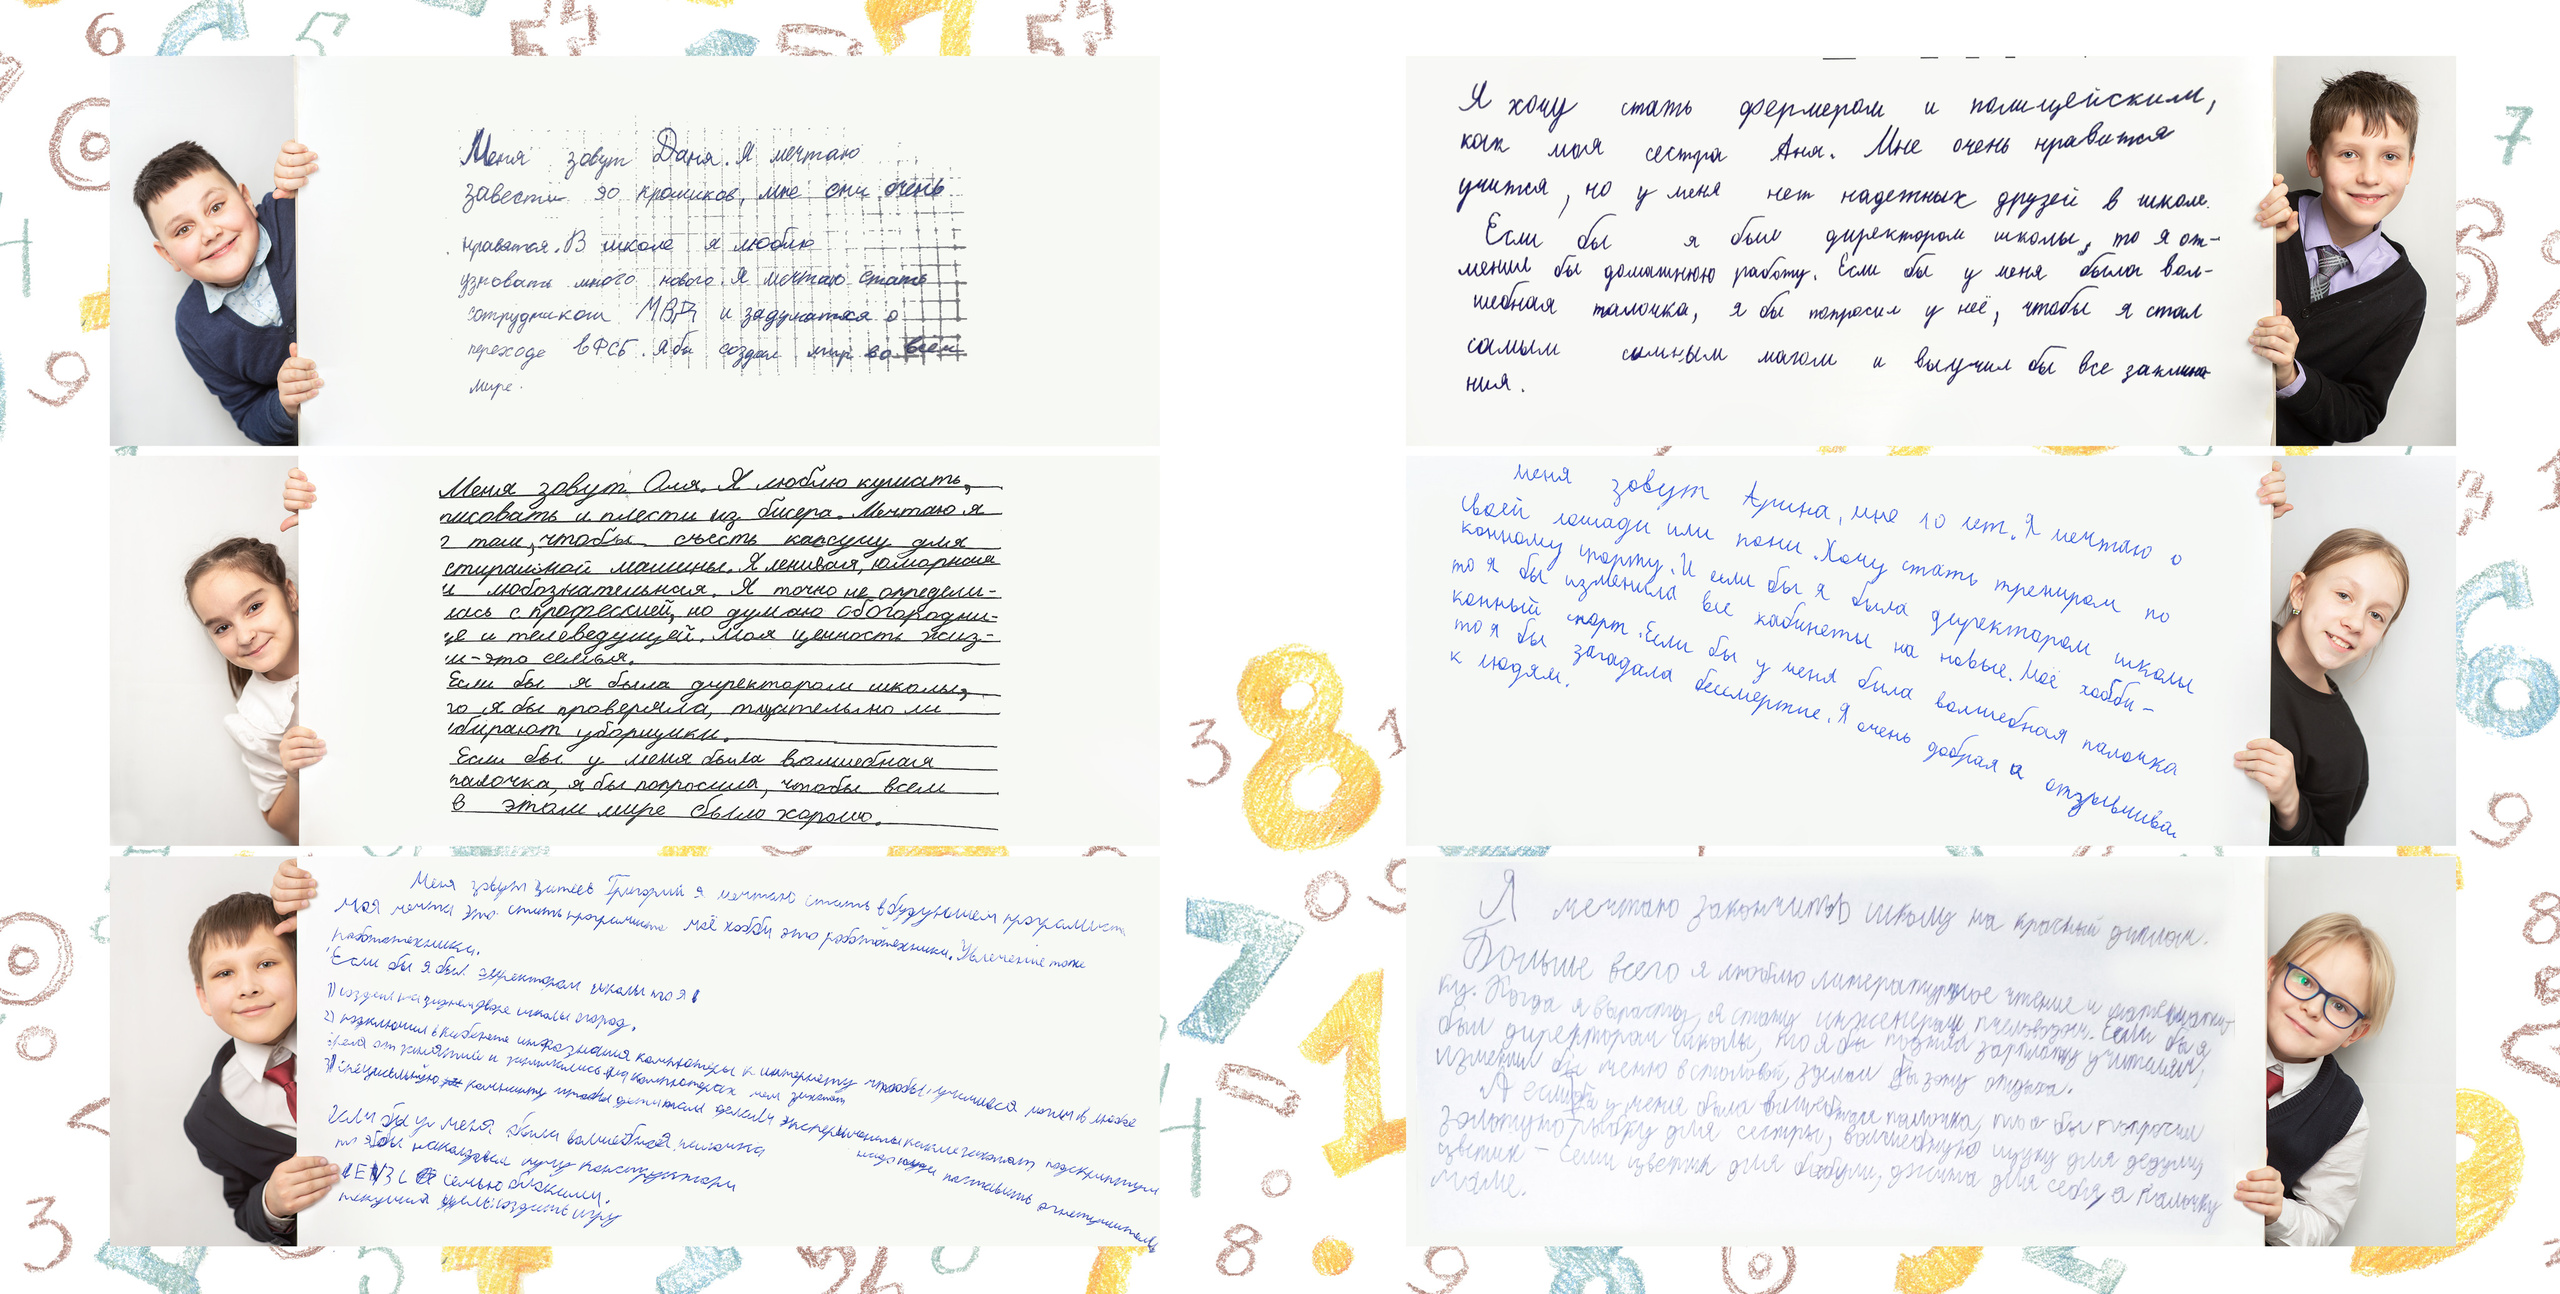 Меня зовут Даня. Я мечтаю
завести 30 кроликов, мне они очень
нравятся. В школе я люблю
узновать много нового. Я мечтаю стать
сотрудником МВД и задуматся о
переходе в ФСБ. Я бы создал мир во всём
мире.
Меня зовут Оля. Я люблю кушать,
рисовать и плести из бисера. Мечтаю я
о том, чтобы съесть капсулу для
стиральной машины. Я ленивая, юморная
и любознательная. Я точно не определи-
лась с профессией, но думаю о
и телеведущей. Моя ценность жиз-
и-это семья.
Если бы я была директором школы,
то я бы проверяла, тщательно ли
убирают уборщики.
Если бы у меня была волшебная
палочка, я бы попросила, чтобы всем
в этом мире было хорошо.
Меня зовут Григорий я мечтаю стать в будующем програмистом
Моя мечта это стать програмистом моё хобби это робототехника. Увлечение тоже
робототехника.
Если бы я был директором школы то я
1) создал на заднем дворе школы огород.
2) подключил в кабинете компьютеры к интернету чтобы учиниеся
3) специальную комнату чтобы дети делали эксперименты
надо поставить огнетушитель
Если бы у меня была волшебная палочка
то я бы наколдовал кучу конструктора
с семьёю близкими.
создать игру
Я хочу стать фермером и полицейским,
как моя сестра Аня. Мне очень нравится
учится, но у меня нет надежных друзей в школе.
Если бы я был директором школы, то я от-
менил бы домашнюю работу. Если бы у меня была вол-
шебная палочка, я бы попросил у неё, чтобы я стал
самым сильным магом и выучил бы все заклина
ния.
Меня зовут Арина, мне 10 лет. Я мечтаю о
своей лошади или пони. Хочу стать тренером по
конному спорту. И если бы я была директором школы
то я бы изменила все кабинеты на новые. Моё хобби-
конный спорт. Если бы у меня была волшебная палочка
то я бы загадала бессмертие. Я очень добрая и отзывчива
к людям.
Я мечтаю закончить школу на красный диплом.
Больше всего я люблю литературное чтение и математи-
ку. Когда я вырасту, я стану инженером пчеловодом. Если бы я
был директором школы, то я бы поднял зарплату учителям,
изменил бы меню в столовой, зделал бы зону отдыха.
А если бы у меня была волшебная палочка, то я бы попросил
золотую рыбку для сестры, волшебную щуку для дедули,
цветик-семи цветик для бабули, джина для себя, а палочку
маме.